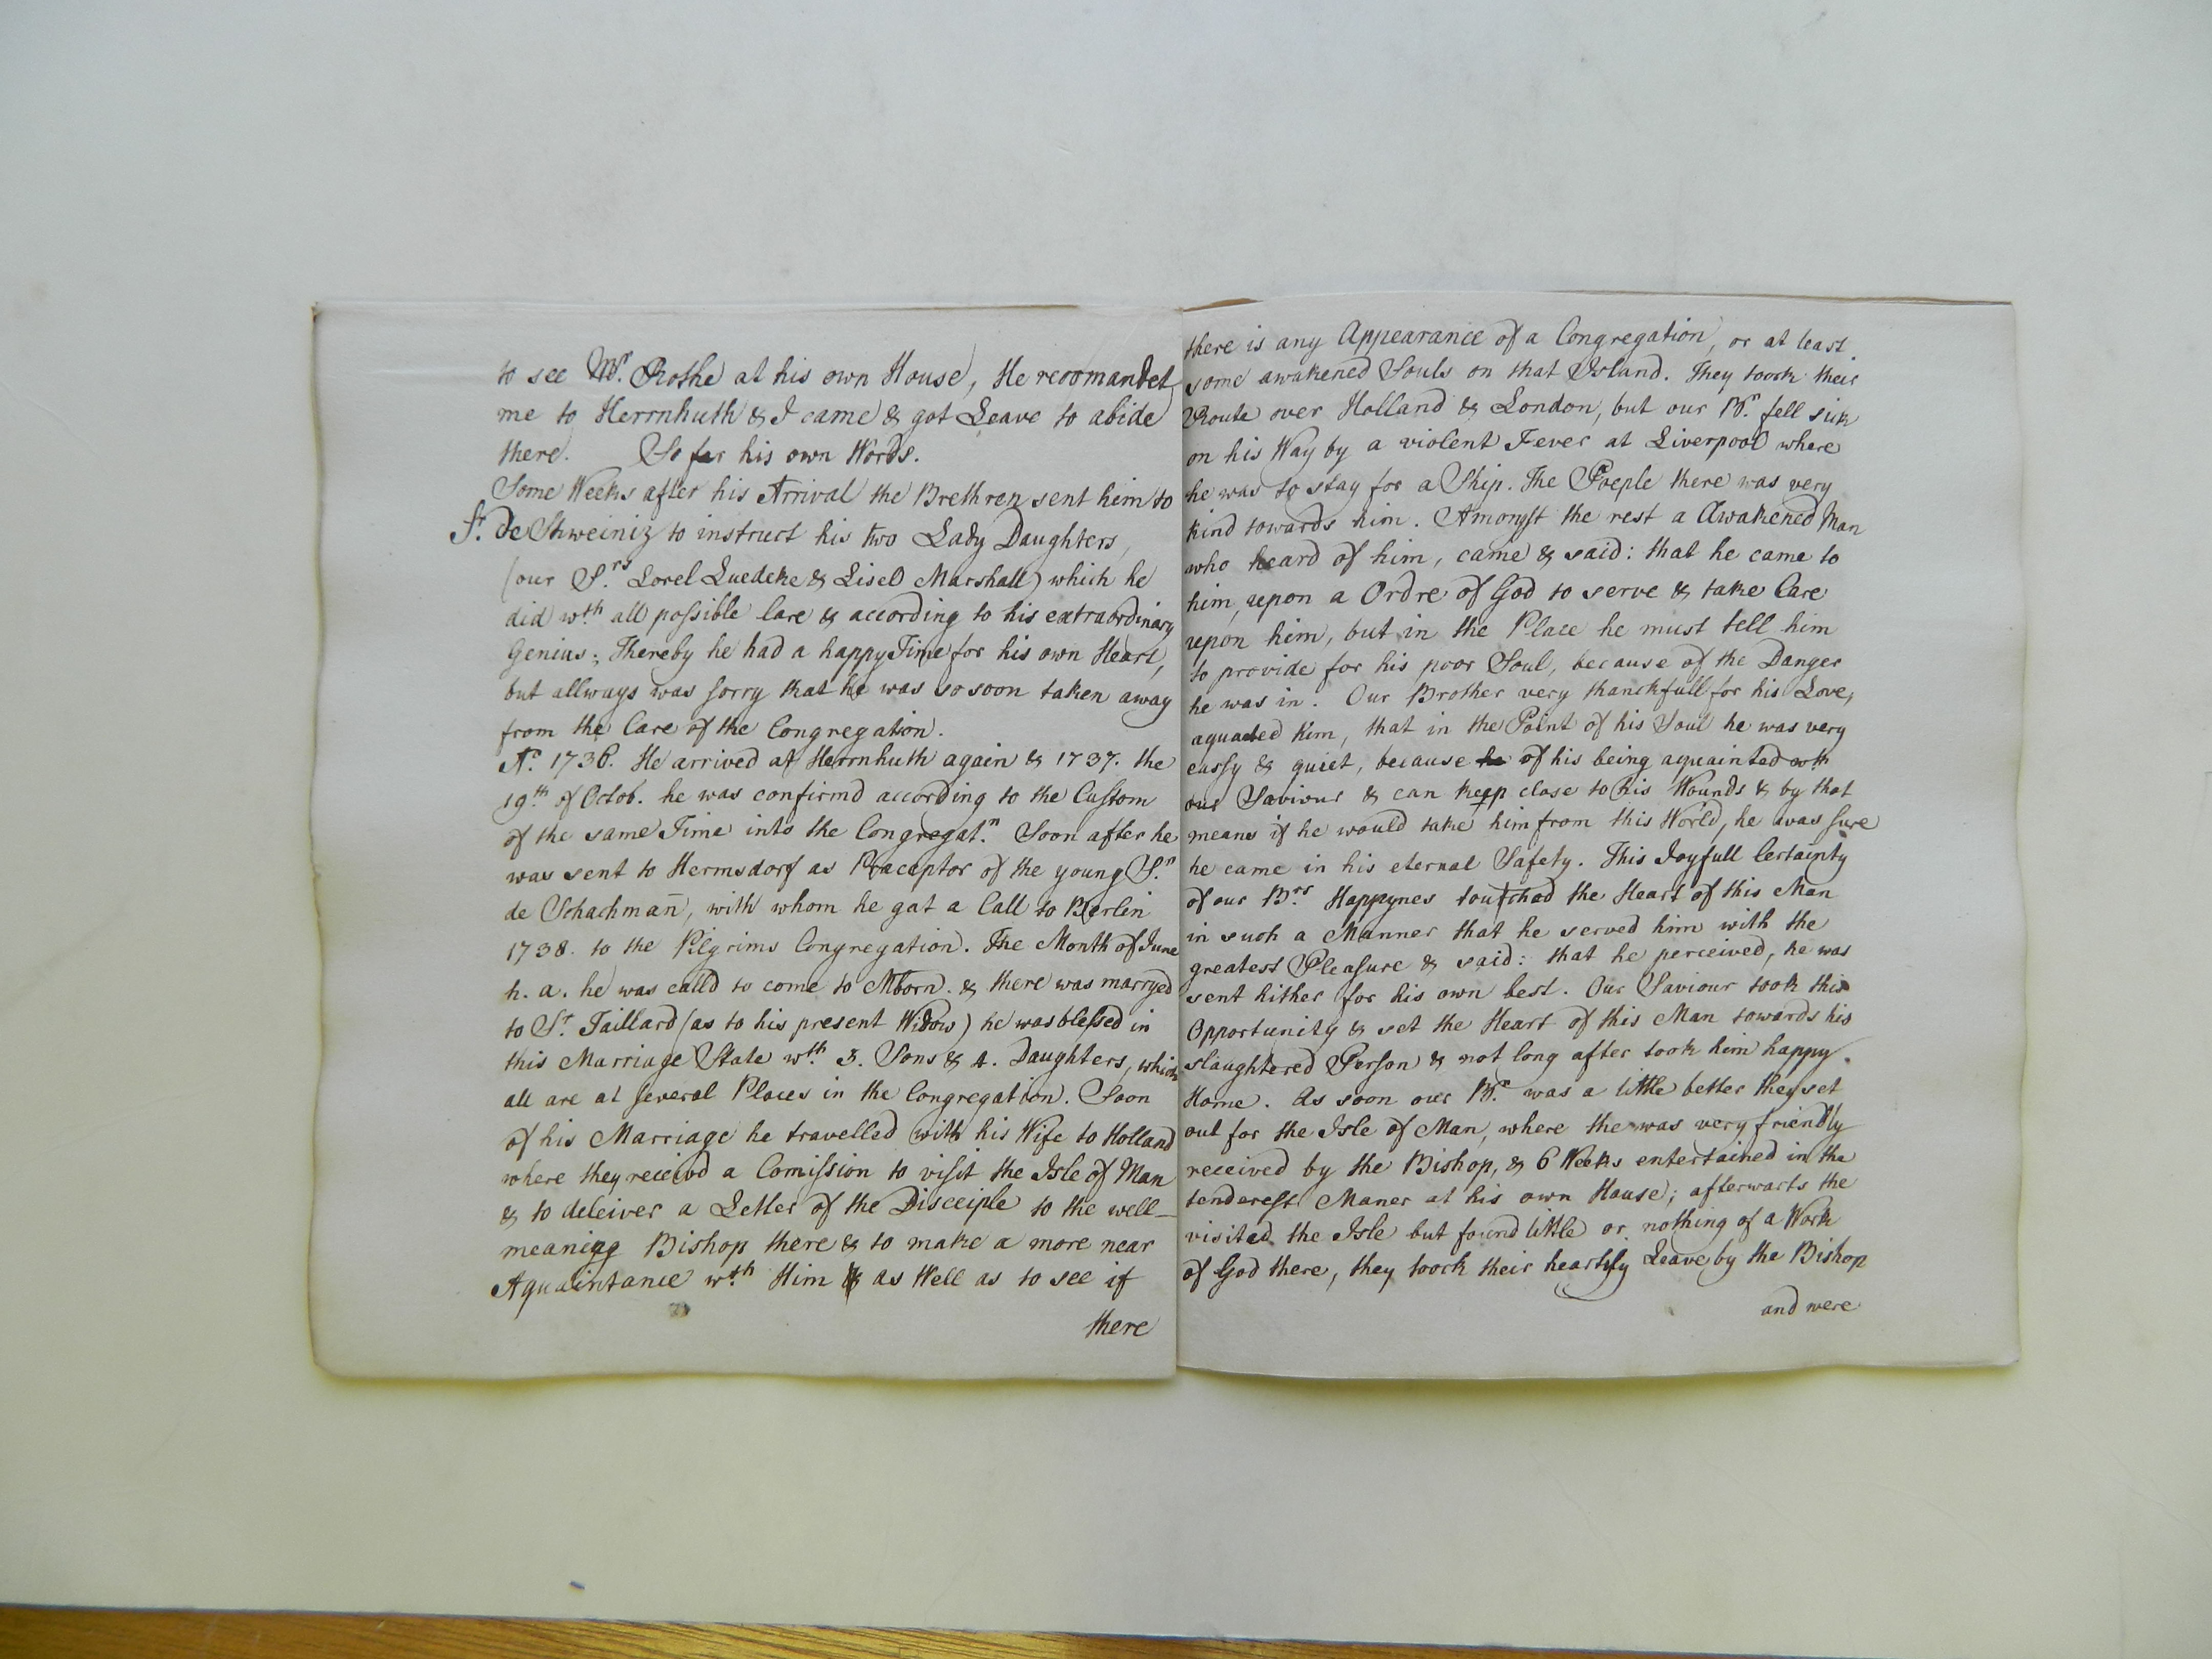 to see Mr. Rothe at his own House, He recomandet
me to Herrnhuth & I came & got Leave to abide
there. So far his own Words.
Some Weeks after his Arrival the Brethren sent him to
Sr. de Shweiniz to instruct his two Lady Daughters,
(our S.rs Lorel Luedeke & Lisel Marshall) which he
did wth. all possible Care & according to his extraordinary
Genius; Thereby he had a happy Time for his own Heart,
but allways was sorry that he was so soon taken away
from the Care of the Congregation.
Ao. 1736. He arrived at Herrnhuth again & 1737. the
19th. of Octob. he was confirmd according to the Custom
of the same Time into the Congregat.n Soon after he
was sent to Hermsdorf as Præceptor of the young S.n
de Schachman̄, with whom he gat a Call to Berlin
1738. to the Pilgrims Congregation. The Month of June
h. a. he was calld to come to Mborn. & there was marryed
to Sr. Taillard (as to his present Widow) he was blessed in
this Marriage State wth. 3. Sons & 4. Daughters, which
all are at several Places in the Congregation. Soon
of his Marriage he travelled with his Wife to Holland
where they receivd a Comission to visit the Isle of Man
& to deleiver a Letter of the Disceiple to the well-
meaning Bishop there & to make a more near
Aquaintance wth. Him & as Well as to see if
there
there is any Appearance of a Congregation, or at least
some awakened Souls on that Island. They toock their
Route over Holland & London, but our Br. fell sick
on his Way by a violent Fever at Liverpool where
he was to stay for a Ship. The Poeple there was very
kind towards him. Amongst the rest a Awakened Man
who heard of him, came & said: that he came to
him, upon a Ordre of God to serve & take Care
upon him, but in the Place he must tell him
to provide for his poor Soul, because of the Danger
he was in. Our Brother very thanckfull for his Love,
aquaded him, that in the Point of his Soul he was very
eassy & quiet, because he of his being aquainted wth
our Saviour & can keep close to his Wounds & by that
means if he would take him from this World, he was sure
he came in his eternal Safety. This Joyfull Certainty
of our Brs. Happynes toutchad the Heart of this Man
in such a Manner that he served him with the
greatest Pleasure & said: that he perceived, he was
sent hither for his own best. Our Saviour took this
Opportunity & set the Heart of this Man towards his
slaughtered Person & not long after took him happy
Home. As soon our Br. was a little better they set
out for the Isle of Man, where the was very friendly
received by the Bishop, & 6 Weeks entertained in the
tenderest Maner at his own House; afterwarts the
visited the Isle but found little or nothing of a Work
of God there, they toock their heartyly Leave by the Bishop
and were